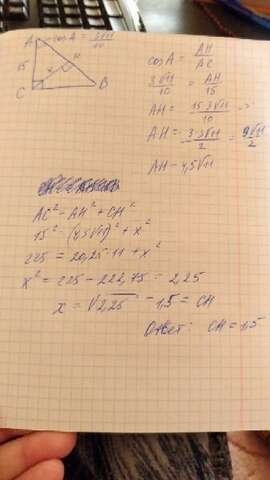 A cosA = 3√11/10
15 x H
C B
cosA = AH/AC
3√11/10 = AH/15
AH = 15·3√11/10 =
AH = 3·3√11/2 = 9√11/2
AH = 4,5√11
AC² = AH² + CH²
15² = (4,5√11)² + x²
225 = 20,25·11 + x²
x² = 225 - 222,75 = 2,25
x = √2,25 = 1,5 = CH
Ответ: CH = 1,5